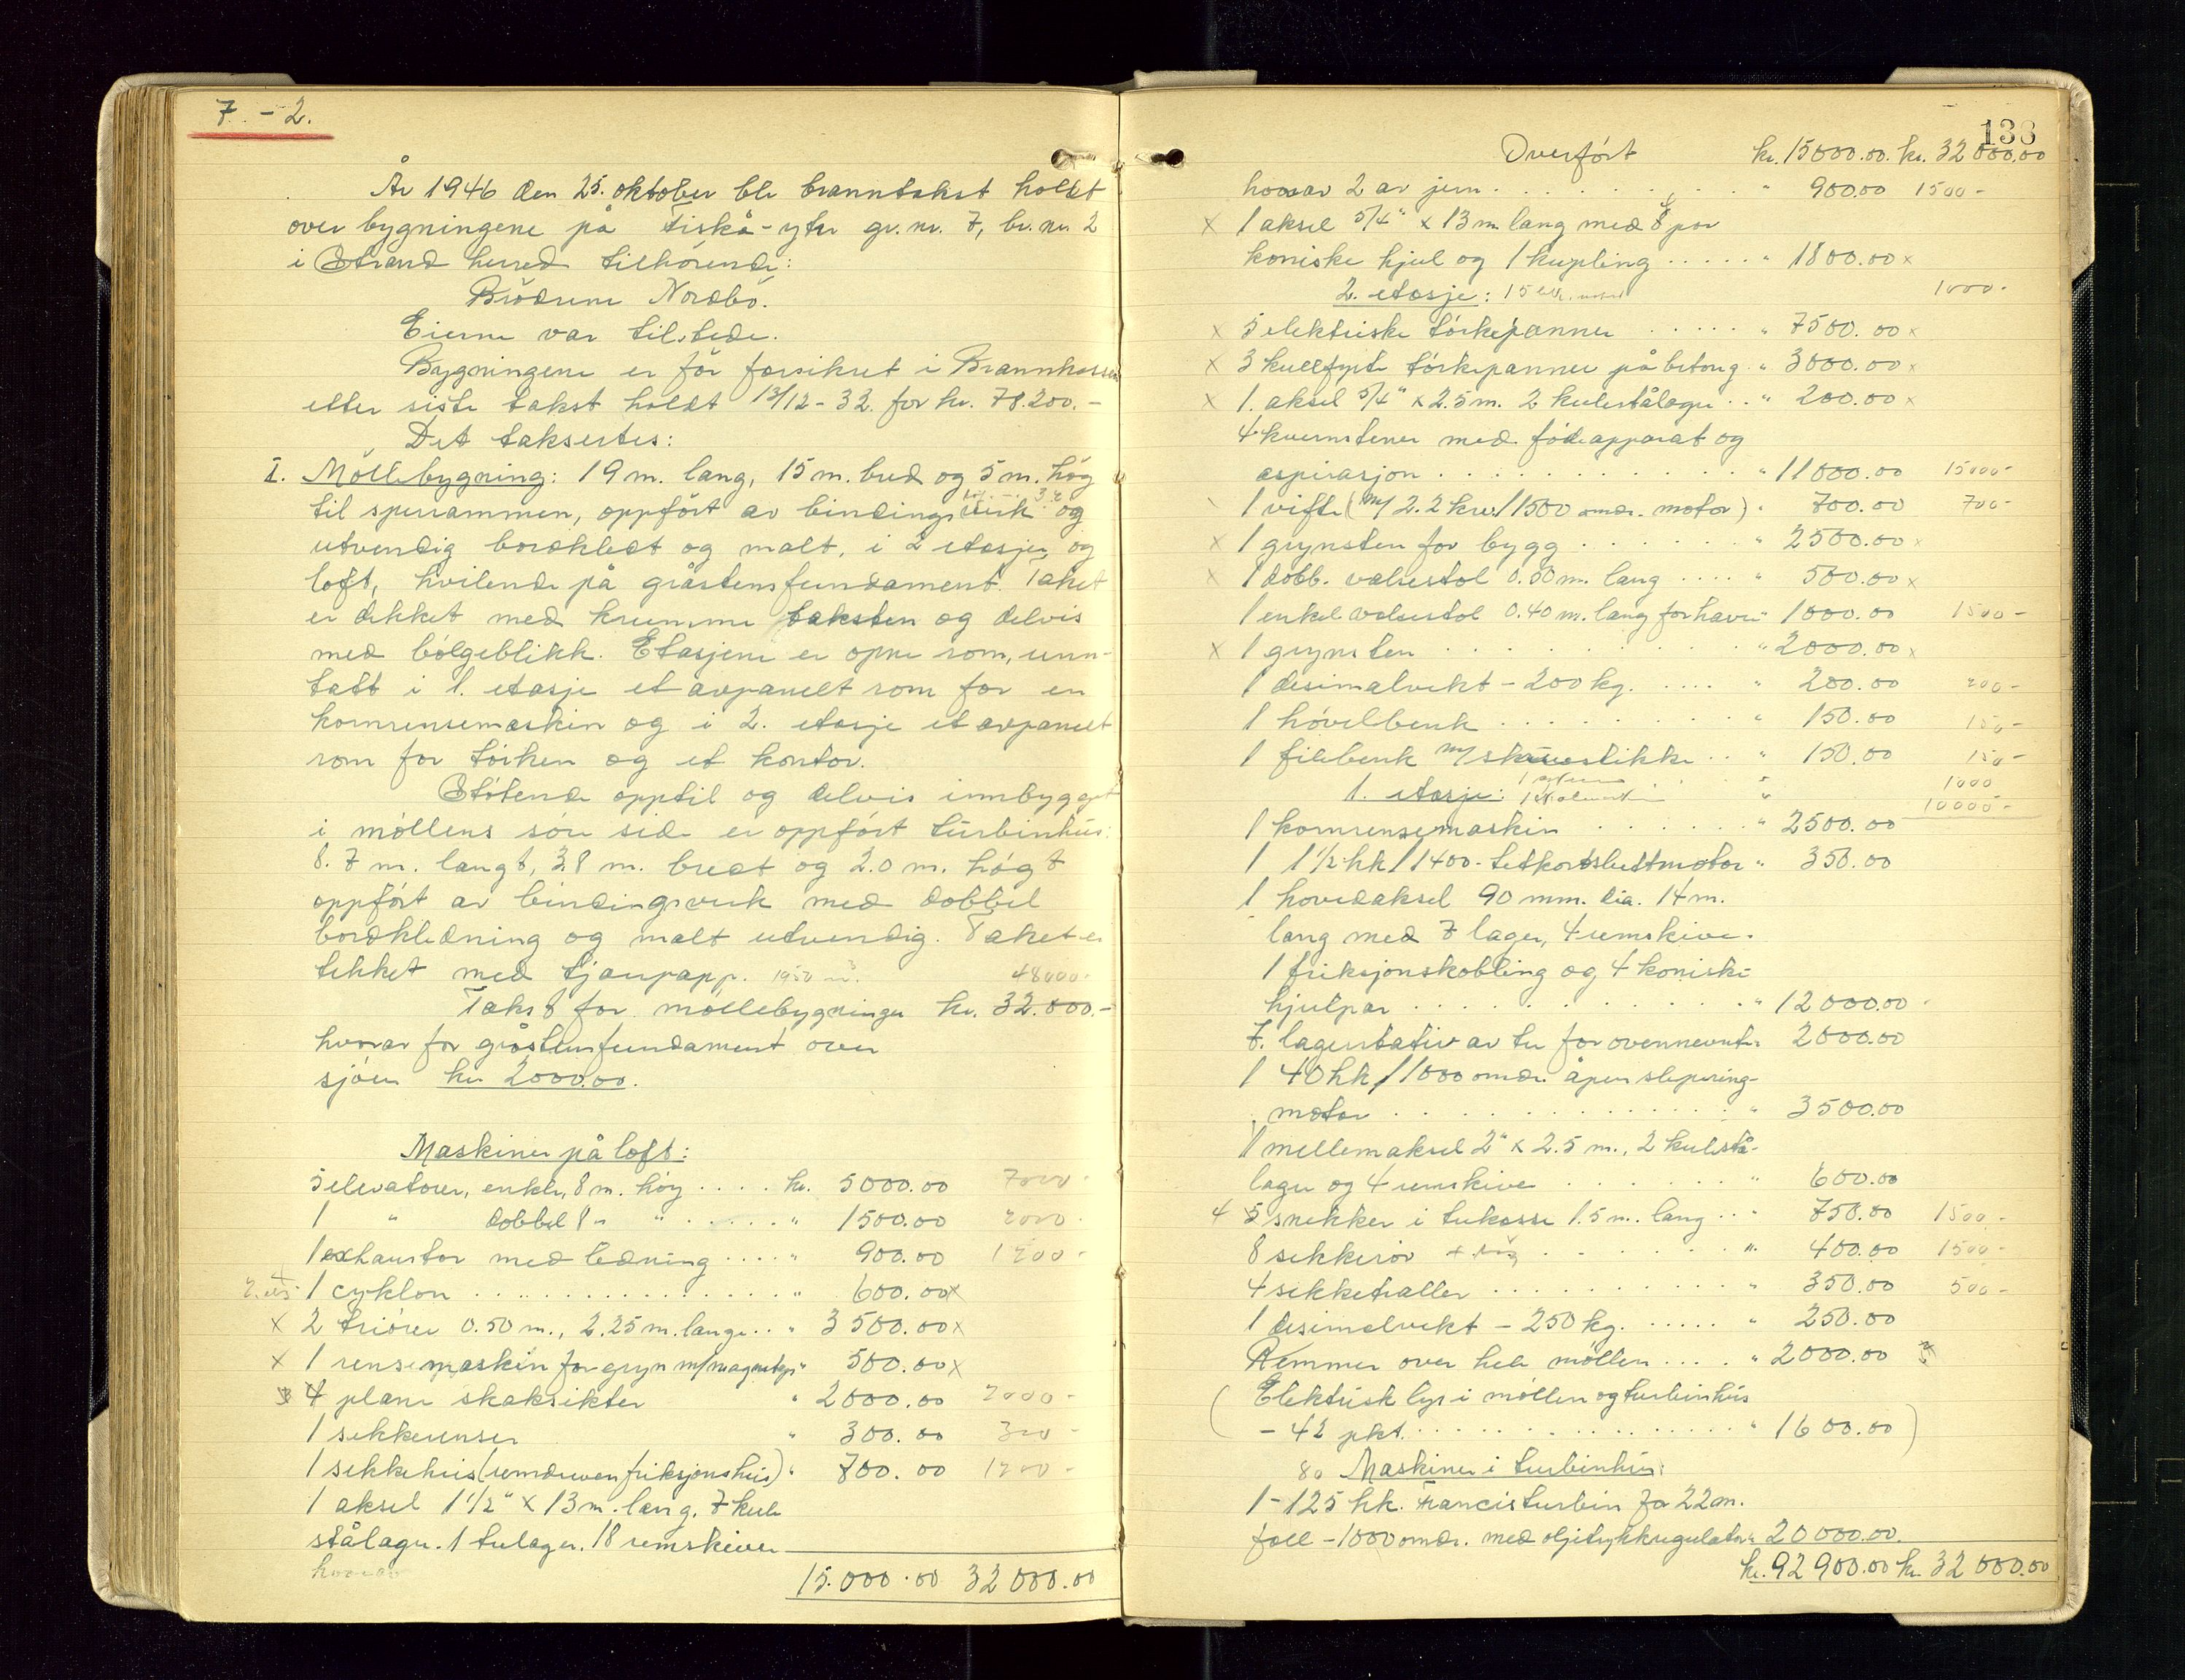 7. - 2.
År 1946 den 25. oktober ble branntakst holdt
over bygningene på Fiskå-ytre gr.nr. 7, br.nr. 2
i Strand herred tilhørende:
Brødrene Nordbø.
Eierne var tilstede.
Bygningene er før forsikret i Brannkassen
etter siste takst holdt 13/12-32 for kr. 78.200.-
Det taksertes:
I. Møllebygning: 19 m. lang, 15 m. bred og 5 m. høg
til sperrammen, oppført av bindingsverk og
utvendig bordkledt og malt, i 2 etasjer og
loft, hvilende på gråstensfundament. Taket
er dekket med krumme taksten og delvis
med bølgeblikk. Etasjene er opne rom, unn-
tatt i 1. etasje et avpanelt rom for en
kornrensemaskin og i 2. etasje et avpanelt
rom for tørken og et kontor.
Støtende opptil og delvis innbygget
i møllens søre side er oppført turbinhus:
8.7 m. langt, 3.8 m. bredt og 2.0 m. høgt
oppført av bindingsverk med dobbel
bordkledning og malt utvendig. Taket er
tekket med tjærepapp. 1950 m³ 48000-
Takst for møllebygningen kr. 32.000.-
hvorav for gråstensfundament over
sjøen kr 2000.00.
Maskiner på loft:
5 elevatorer, enkle, 8 m. høg .... kr. 5000.00 7000-
1 " dobbel 8 " " ...... " 1500.00 2000-
1 exhaustor med ledning .... " 900.00 1200-
1 cyklon ................ " 600.00 x
x 2 triører 0.50 m., 2.25 m. lange .. " 3500.00 x
x 1 rensemaskin for gryn m/magnet " 500.00 x
4 plane skaksikter " 2000.00 2000-
1 sekkerenser " 300.00 300-
1 sekkeheis (remdreven friksjonsheis) " 700.00 1200-
1 aksel 1 1/2" x 13 m. lang. 7 kule
stålager. 1 trelager. 18 remskiver
hvorav
15.000.00 32000.00
138
Overført kr. 15000.00. kr. 32000.00
hvorav 2 av jern ......... " 900.00 1500-
x 1 aksel 5/4" x 13 m. lang med 8 par
koniske hjul og 1 kupling ..... " 1800.00 x
2. etasje: 1000-
x 5 elektriske tørkepanner ..... " 7500.00 x
x 3 kullfyrte tørkepanner på betong " 3000.00 x
x 1. aksel 5/4" x 2.5 m. 2 kulestålager .. " 200.00 x
4 kvernstener med fødeapparat og
aspirasjon ............ " 11000.00 15000-
1 vifte (m/ 2.2 kw/1500 omdr. motor) " 700.00 700-
x 1 grynsten for bygg ....... " 2500.00 x
x 1 dobb. valsestol 0.50 m. lang .... " 500.00 x
1 enkel valsestol 0.40 m. lang for havre " 1000.00 1500-
x 1 grynsten ........... " 2000.00 x
1 desimalvekt - 200 kg. .... " 200.00 200-
1 høvelbenk ......... " 150.00 150-
1 filebenk m/ skruestikke .. " 150.00 150-
1. etasje: " 1000
10000-
1 kornrensemaskin ...... " 2500.00
1 1 1/2 hk/1400- tetkortsluttmotor " 350.00
1 hovedaksel 90 mm. dia. 14 m.
lang med 7 lager, 4 remskiver
1 friksjonskobling og 4 koniske
hjulpar ............. " 12000.00
7. lagerstativ av tre for ovennevnte " 2000.00
1 40 hk/1000 omdr. åpen slepering-
motor ............. " 3500.00
1 mellemaksel 2" x 2.5 m., 2 kulestå-
lager og 4 remskiver ...... " 600.00
4 5 snekker i trekasse 1.5 m. lang .. " 750.00 1500.-
8 sekkerør ....... " 400.00 1500-
4 sekketraller ......... " 350.00 500-
1 desimalvekt - 250 kg. ..... " 250.00
Remmer over hele møllen .... " 2000.00
(Elektrisk lys i møllen og turbinhus
- 42 pkt. ............... " 1600.00)
80 Maskiner i turbinhus:
1 - 125 hk. Francisturbin for 22 m.
fall - 1000 omdr. med oljetrykkregulator " 20000.00.
kr. 92900.00 kr 32000.00